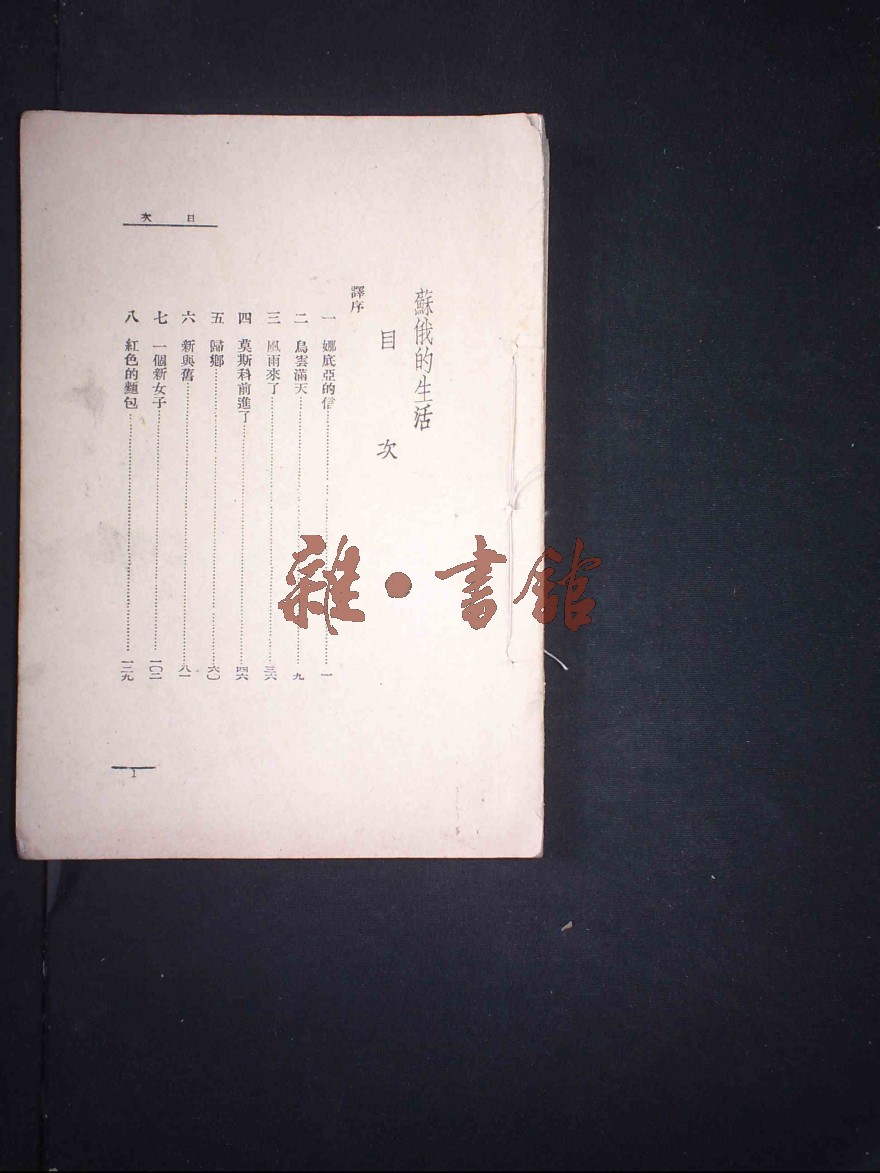 目次
蘇俄的生活
目次
譯序
一 娜底亞的信 一
二 烏雲滿天 九
三 風雨來了 三六
四 莫斯科前進了 四六
五 歸鄉 六〇
六 新與舊 八一
七 一個新女子 一〇二
八 紅色的麵包 一二九
1
雜·書館